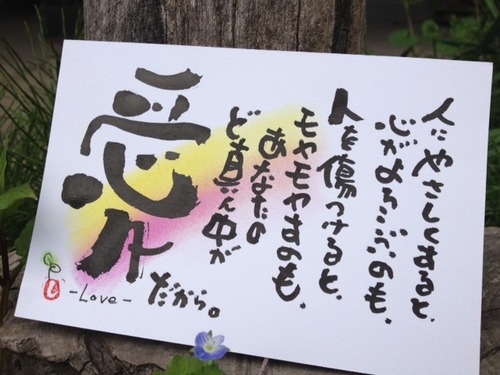 人にやさしくすると、
心がよろこぶのも、
人を傷つけると、
モヤモヤするのも、
あなたの
ど真ん中が
愛
だから。
-Love-